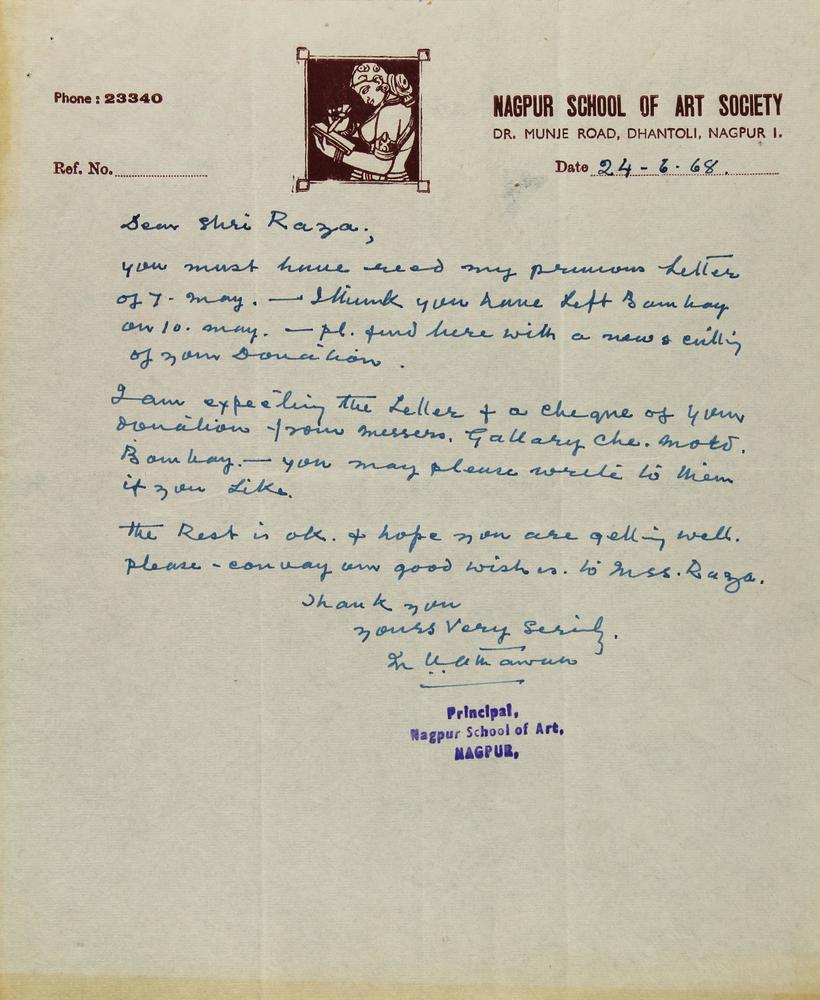 Phone : 23340
NAGPUR SCHOOL OF ART SOCIETY
DR. MUNJE ROAD, DHANTOLI, NAGPUR 1.
Ref. No.
Date 24 - 6 - 68.
Dear Shri Raza,
you must have read my previous Letter
of 7. may. — I think you have Left Bombay
on 10. may. — pl. find here with a news cutting
of your Donation.
I am expecting the Letter & a cheque of your
Donation from messers. Gallary Che. mold.
Bombay. — you may please write to them
if you Like.
the Rest is ok. & hope you are getting well.
please - convay our good wishes. to Mss. Raza.
Thank you
yours Very
Principal,
Nagpur School of Art,
NAGPUR,